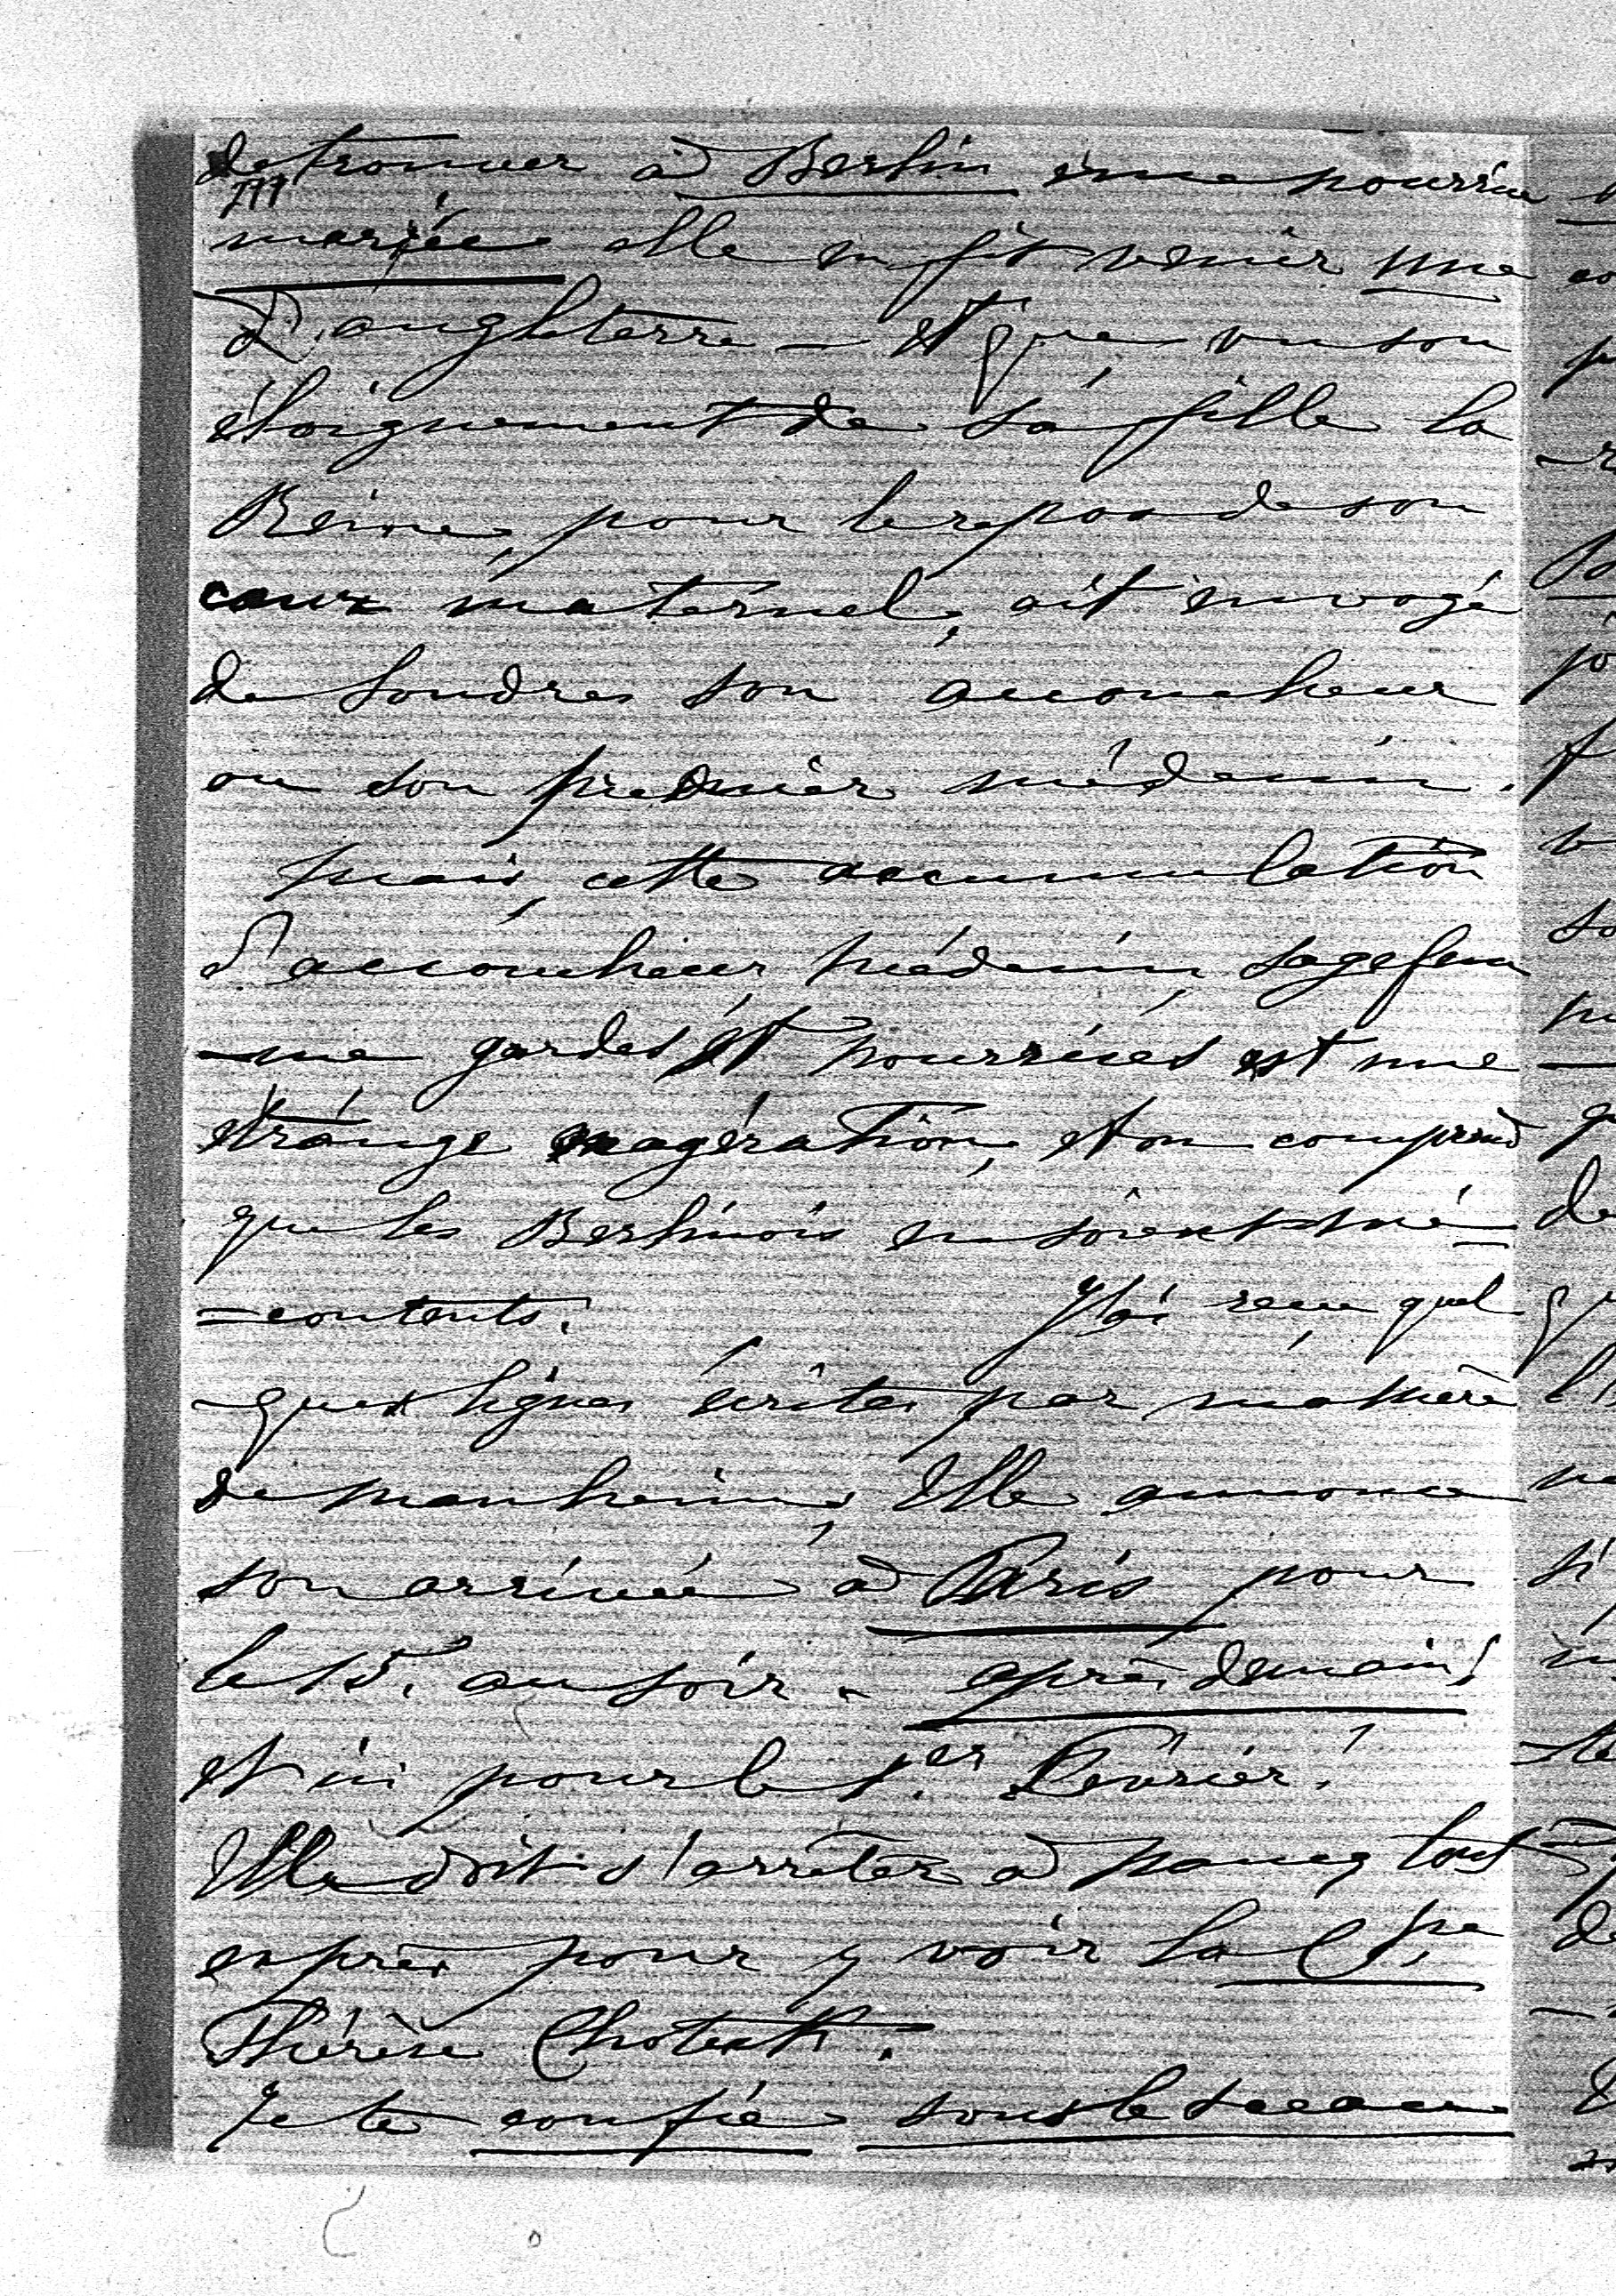 de trouver à Berlin une nourrice
mariée elle en fit venir une
d'angleterre — Et que, vu son
éloignement de sa fille la
Reine, pour le repos de son
cœur maternel, ait envoyé
de Londres son accoucheur
ou son premier médecin.
Mais, cette accumulation
d'accoucheur, médecin, sagefem
-me gardes et nourrices est une
étrange exagération, et on comprend
que les Berlinois en soient mé-
=contents. J'ai reçu quel
-ques lignes écrites par ma mère
de Manheim, Elle annonce
son arrivée à Paris pour
le 15. au soir - après demain!
et ici pour le 1.er Février!
Elle doit s'arrêter à Nancy tout
exprès pour y voir la
Thérèse Chotek.
Je te confie sous le sceau